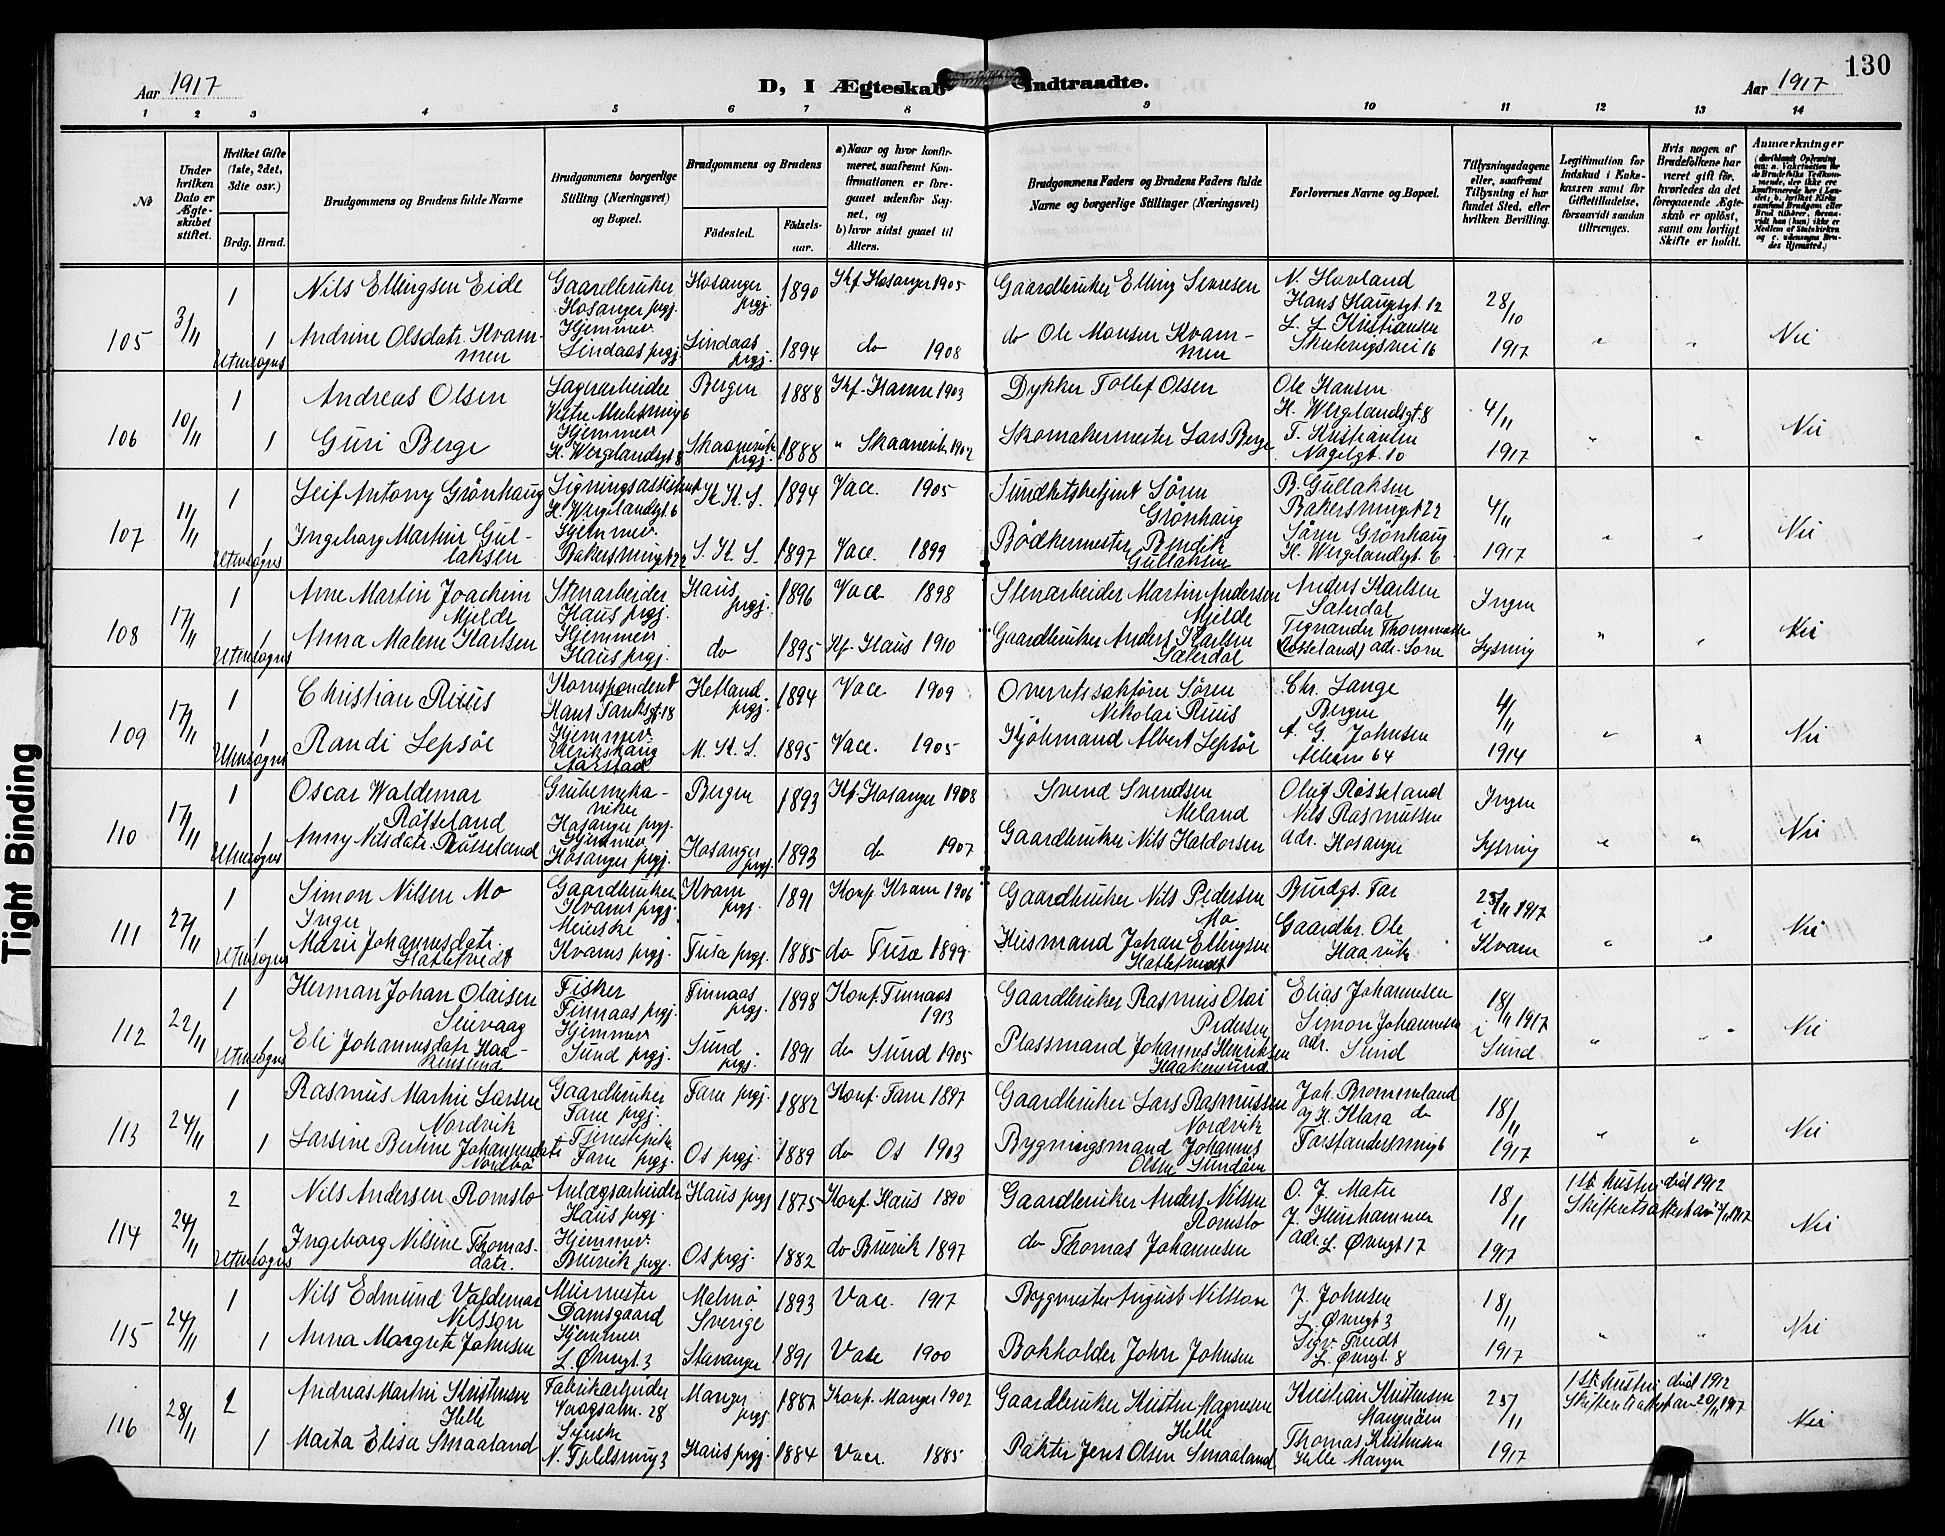 130
Aar 1917
D, I Ægteskab Indtraadte.
Aar 1917
1 2 3 4 5 6 7 8 9 10 11 12 13 14
No
Under hvilken Dato er Ægteskabet stiftet.
Hvilket Gifte (1ste, 2det, 3dte osv.)
Brdg. Brud.
Brudgommens og Brudens fulde Navne
Brudgommens borgerlige Stilling (Næringsvei) og Bopæl.
Brudgommens og Brudens
Fødested. Fødselsaar.
a) Naar og hvor konfirmeret, saafremt Konfirmationen er foregaaet udenfor Sognet, og
b) hvor sidst gaaet til Alters.
Brudgommens Faders og Brudens Faders fulde Navne og borgerlige Stillinger (Næringsvei)
Forlovernes Navne og Bopæl.
Tillysningsdagene eller, saafremt Tillysning ei har fundet Sted, efter hvilken Bevilling.
Legitimation for Indskud i Enkekassen samt for Giftetilladelse, forsaavidt saadan tiltrænges.
Hvis nogen af Brudefolkene har været gift før, hvorledes da det foregaaende Ægteskab er opløst, samt om lovligt Skifte er holdt.
Anmærkninger
105 3/11 1 Nils Ellingsen Eide Gaardbruker Hosanger prgj. Hosanger prgj. 1890 Kf. Hosanger 1905 Gaardbruker Elling Iversen N. Havland Hans Haugsgt 12 28/10
Utensogns 1 Andrine Olsdatr. Kvammen Hjemmev. Lindaas prgj. Lindaas prgj. 1894 do 1908 do Ole Monsen Kvammen L. L. Kristiansen Skutevigsvei 16 1917 " " Nei
106 10/11 1 Andreas Olsen Lagerarbeider Bergen 1888 Kf. Hamre 1903 Dykker Tollef Olsen Ole Hansen H. Wergelandsgt. 8 4/11
1 Guri Berge Hjemmev. H. Wergelandsgt 8 Skaanevik prgj. 1888 " Skaanevik 1902 Skomakermester Lars Berge T. Kristiansen Nagelgt. 10 1917 " " Nei
107 11/11 1 Leif Antony Grønhaug Ligningsassistent H. Wergelandsgt. 6 St. K. S. 1894 Vacc. 1905 Søren Grønhaug B. Gullaksen Bakersmuget 22 4/11
Utensogns 1 Ingeborg Martine Gullaksen Hjemmev. Bakersmuget 22 S. K. S. 1897 Vacc. 1899 Bødkermester Bendik Gullaksen Søren Grönhaug H. Wergelandsgt. 6 1917 " " Nei
108 17/11 1 Arne Martin Joachim Mjelde Stenarbeider Haus prgj. Haus prgj. 1896 Vacc 1898 Stenarbeider Martin Andersen Mjelde Anders Karlsen Sæterdal Ingen
Utensogns 1 Anna Malene Karlsen Hjemmev Haus prgj. do 1895 Kf. Haus 1910 Gaardbruker Anders Karlsen Sæterdal Lysning " " Nei
109 17/11 1 Christian Ruus Korrespondent Hans Tanksgt. 18 Hetland prgj. 1894 Vacc 1909 Overretssakfører Søren Nikolai Ruus Chr. Lange Bergen 4/11
Utensogns 1 Randi Lepsøe Hjemmev. Ulrikshaug Aarstad M. K. S. 1895 Vacc. 1905 Kjøbmand Albert Lepsøe A. G. Johnsen Alleen 64 1914 " " Nei
110 17/11 1 Oscar Waldemar Røsseland Grubemekaniker Hosanger prgj. Bergen 1893 Kf. Hosanger 1908 Svend Svendsen Meland Oluf Røsseland Ingen
Utensogns 1 Anny Nilsdatr. Røsseland Hjemmev Hosanger prgj. Hosanger prgj. 1893 do 1907 Gaardbruker Nils Haldorsen Nils Rasmussen adr. Hosanger Lysning " " Nei
111 27/11 1 Simon Nilsen Mo Gaardbruker Kvams prgj. Kvam prgj. 1891 Konf. Kvam 1906 Gaardbruker Nils Pedersen Mo Brudgs. Far 25/11 1917
Utensogns 1 Inger Marie Johannesdatr. Hatletvedt Meierske Kvams prgj. Fusa prgj. 1885 do Fusa 1899 Husmand Johan Ellingsen Hatletvedt Gaardbr. Ole Haarvik i Kvam " " Nei
112 22/11 1 Herman Johan Olaisen Sievaag Fisker Finnaas prgj. Finnaas prgj. 1898 Konf. Finnaas 1913 Gaardbruker Rasmus Olai Pedersen Elias Johannesen 18/11 1917
Utensogns 1 Eli Johannesdatr. Haakensund Hjemmev Sund prgj. Sund prgj. 1891 do Sund 1905 Plassmand Johannes Henriksen Haakensund Simon Johannesen adr. Sund i Sund " " Nei
113 24/11 1 Rasmus Martin Larsen Nordvik Gaardbruker Fane prgj. Fane prgj. 1882 Konf. Fane 1897 Gaardbruker Lars Rasmussen Nordvik Joh. Brommeland og H. Klara do 18/11
1 Larsine Bertine Johannesdatr Nordbø Tjenestepike Fane prgj. Os prgj. 1889 do Os 1903 Bygningsmand Johannes Olsen Sundøen Forstandersmug 6 1917 " " Nei
114 24/11 2 Nils Andersen Romslo Anlægsarbeider Haus prgj. Haus prgj 1875 Konf. Haus 1890 Gaardbruker Anders Nilsen Romslo O. J. Matre 18/11 1st. hustru død 1912
Utensogns Ingeborg Nilsine Thomasdatr. Hjemmev. Bruvik prgj. Os prgj. 1882 do Bruvik 1897 do Thomas Johannesen J. Heinhammer adr. L. Øvregt 17 1917 Skifteretsattest av 5/11 1917 Nei
115 24/11 1 Nils Edmund Valdemar Nilsson Murmester Damsgaard Malmø Sverige 1893 Vacc. 1917 Bygmester August Nilsson J. Johnsen L. Øvregt 3 18/11
1 Anna Margrete Johnsen Hjemmev L. Øvregt. 3 Stavanger 1891 Vacc 1900 Bokholder John Johnsen Sigv. Tvedt L. Øvregt. 8 1917 " " Nei
116 28/11 2 Andreas Martin Kristensen Helle Fabrikarbeider Vaagsalm. 28 Manger prgj. 1887 Konf. Manger 1902 Gaardbruker Kristen Magnesen Helle Kristian Kristensen 25/11 1st. hustru død 1912
1 Marta Elisa Smaaland Syerske N. Fjeldsmug 3 Haus prgj. 1884 Vacc. 1885 Pakter Jens Olsen Smaaland Thomas Kristensen Helle Manger 1917 Skifteretsattest av 20/11 1917 Nei
Tight Binding